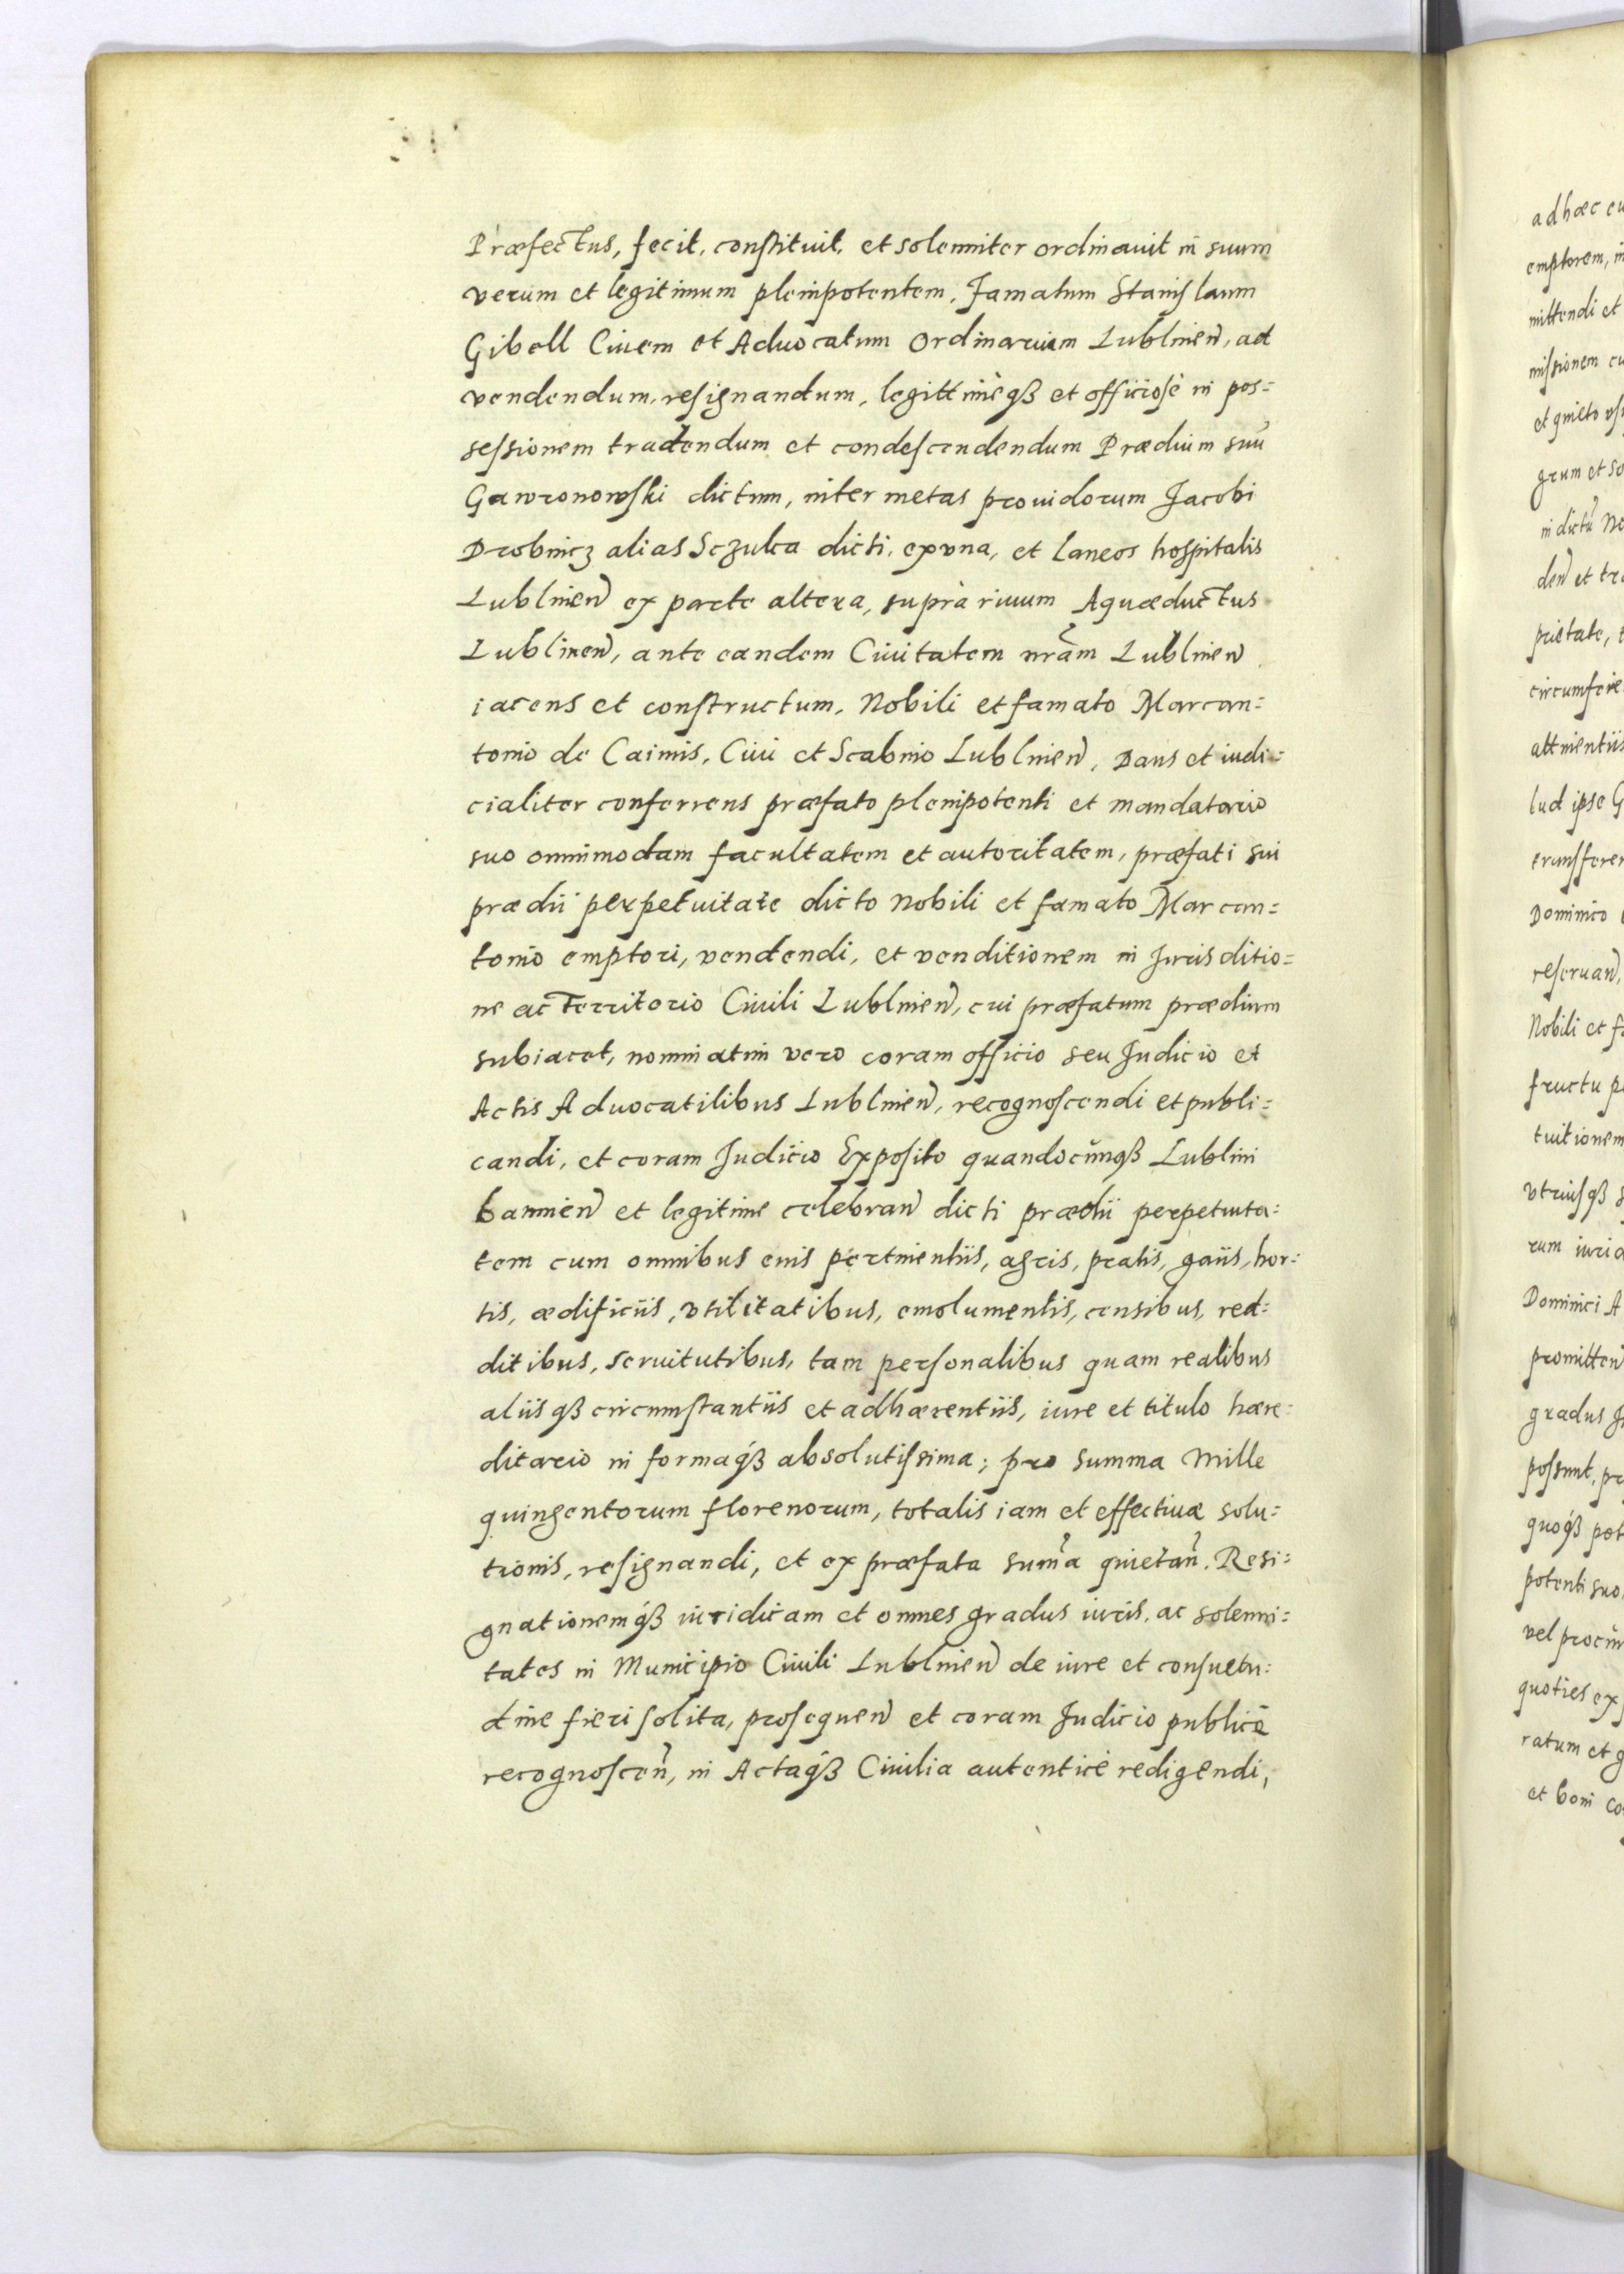 Præfectus, fecit, constituit, et solenniter ordinauit in suum
verum et legitimum plenipotentem, Famatum Stanislaum
Gibell Ciuem et Aduocatum Ordinarium Lublinen̄, ad
vendendum, resignandum, legittimèqꝫ et officiosè in pos=
sessionem tradendum et condescendendum Prædium suū
Gawronowski dictum, inter metas prouidorum Jacobi
Drobnicz alias Sczulca dicti, ex vna, et Laneos hospitalis
Lublinen̄ ex parte altera, suprà riuum Aquæductus
Lublinen̄, ante eandem Ciuitatem nr̄am Lublinen̄
iacens et constructum, Nobili et famato Marcan=
tonio de Caimis, Ciui et Scabino Lublinen̄, Dans et iudi=
cialiter conferrens præfato plenipotenti et mandatario
suo omnimodam facultatem et autoritatem, præfati sui
prædii perpetuitate dicto Nobili et famato Marcan=
tonio emptori, vendendi, et venditionem in Jurisditio=
ne ac Territorio Ciuili Lublinen̄, cui præfatum prædium
subiacet, nominatim vero coram officio seu Judicio et
Actis Aduocatilibus Lublinen̄, recognoscendi et publi=
candi, et coram Judicio Exposito quandocūnqꝫ Lublini
bannien̄ et legitime celebran̄ dicti prædii perpetuita=
tem cum omnibus eius pertinentiis, agris, pratis, gaiis, hor=
tis, ædificiis, vtilitatibus, emolumentis, censibus, red=
ditibus, seruitutibus, tam personalibus quam realibus
aliisqꝫ circumstantiis et adhærentiis, iure et titulo hære=
ditario in formaqꝫ absolutissima; pro summa Mille
quingentorum florenorum, totalis iam et effectiuæ solu=
tionis, resignandi, et ex præfata sum̄a quietan̄. Resi=
gnationemqꝫ iuridicam et omnes gradus iuris, ac solenni=
tates in Municipio Ciuili Lublinen̄ de iure et consuetu=
dine fieri solita, prosequen̄ et coram Judicio publicè
recognoscen̄, in Actaqꝫ Ciuilia autenticè redigendi,
ad hæc
emptorem,
mittendi et
missionem
et quieto
grum et
in dictū
den̄ et
prietate,
circumfere
attinentiis
lud ipse
transferen
Dominico
reseruan̄,
Nobili et
fructu
tuitionem
vtriusqꝫ
rum
Dominici
promitten̄
gradus
possunt,
quoqꝫ
potenti suo
vel
quoties ex
ratum et
et boni